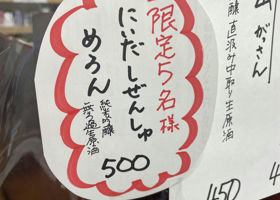 限定5名様
にいだしぜんしゅ
めろん
純米吟醸
無ろ過生原酒
500
がさん
直汲み中取り生原酒
450